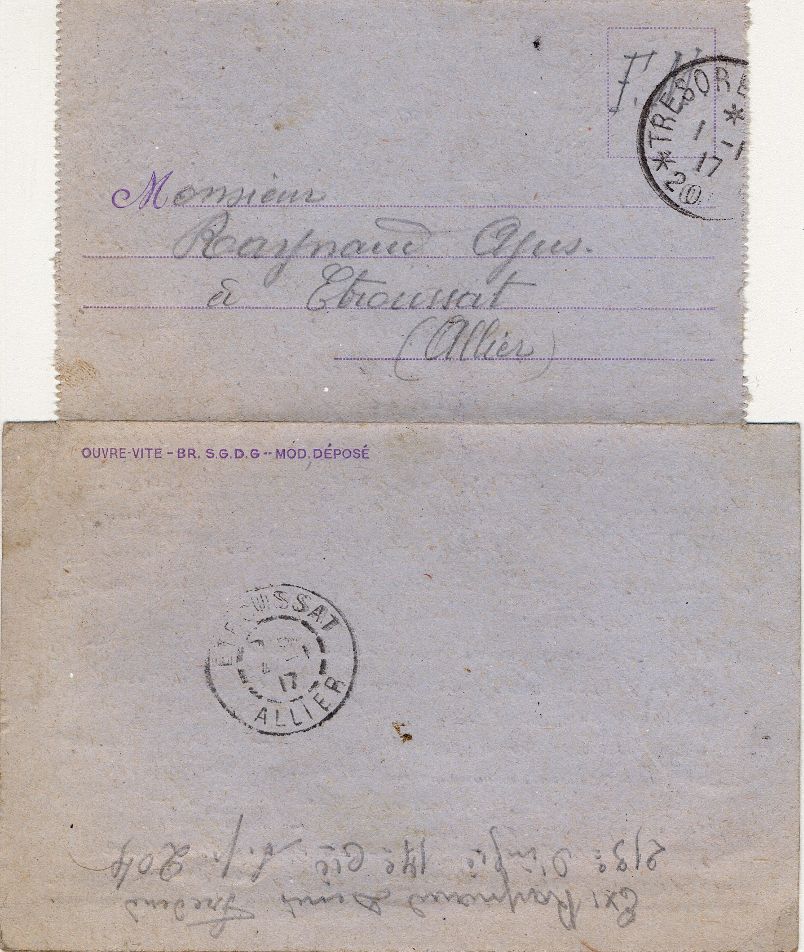 F.M
TRESOR E
1 -1
17
20
Monsieur
Raynaud
à Etroussat
(Allier)
OUVRE-VITE - BR. S.G.D.G - MOD. DÉPOSÉ
ETROUSSAT
17
ALLIER
Ex: Raynaud
213e 17e Cie s.p. 204